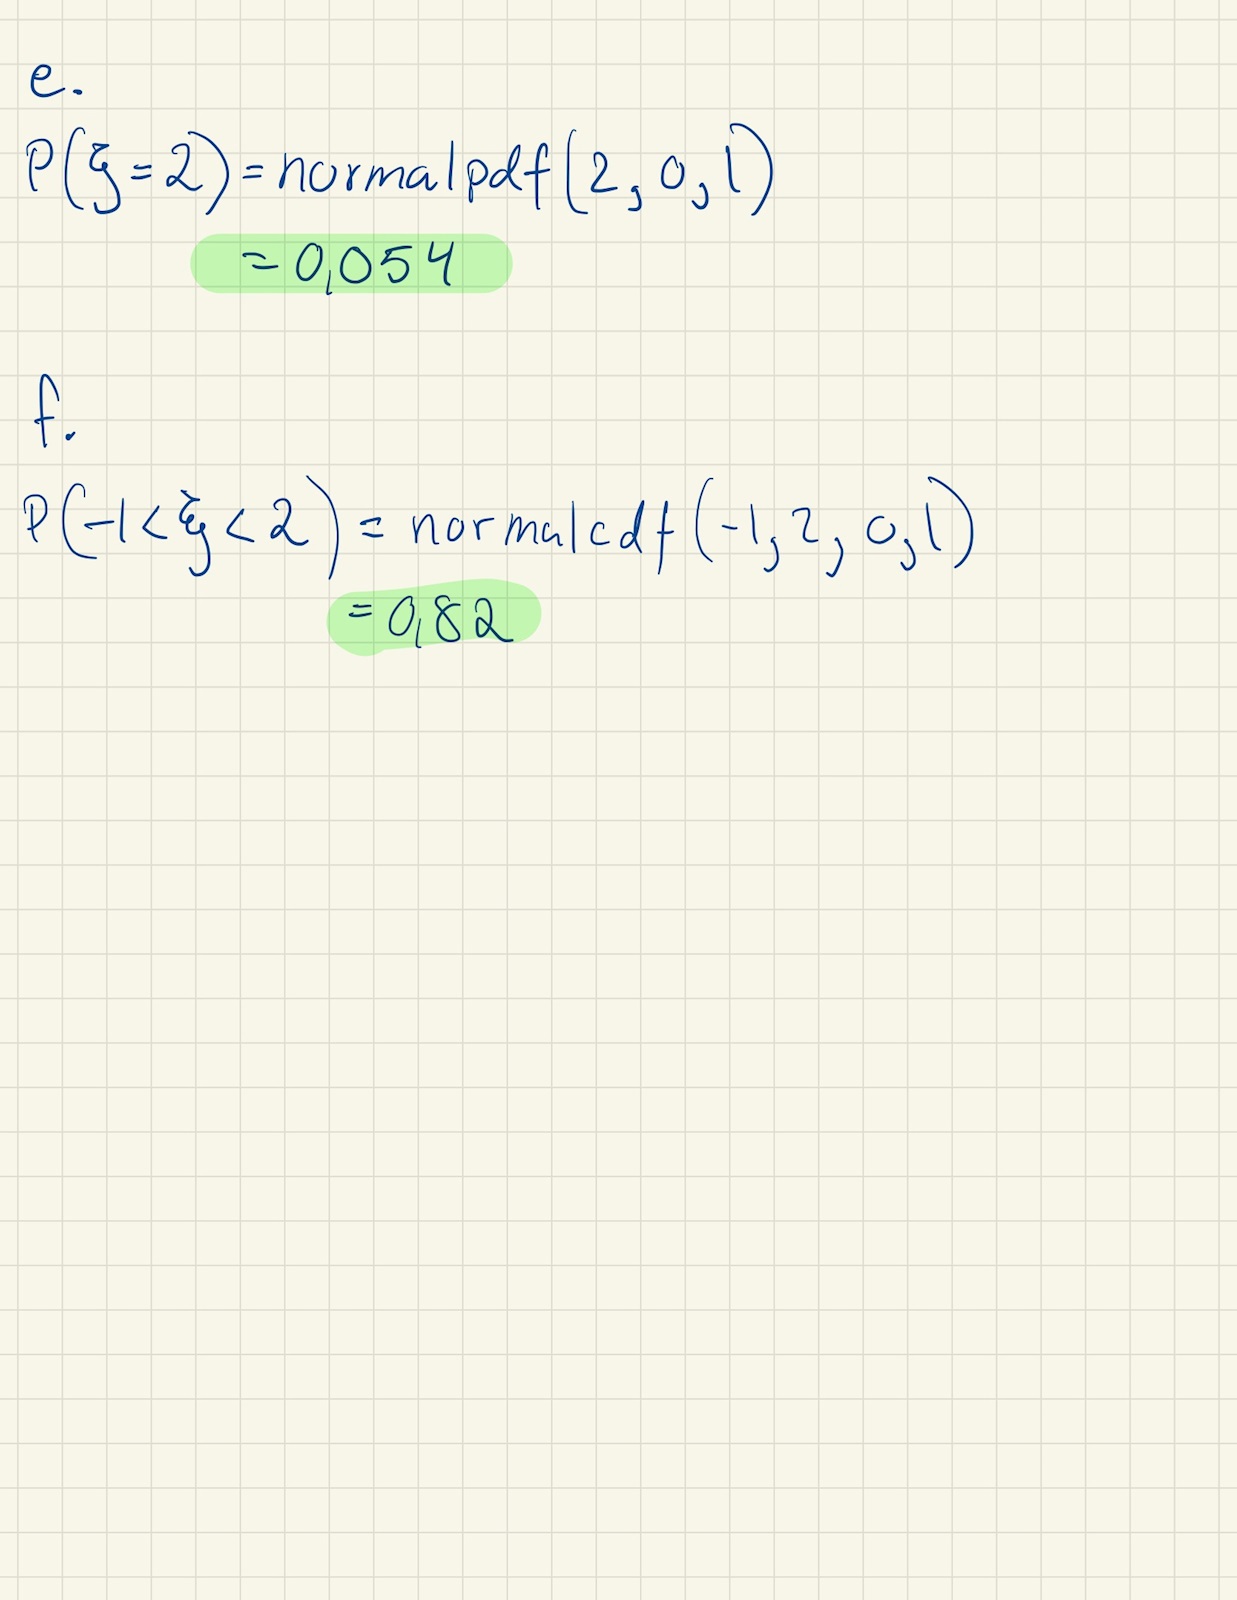 e.
P(ξ=2)=normalpdf(2, 0, 1)
=0,054
f.
P(-1<ξ<2)=normalcdf(-1, 2, 0, 1)
=0,82